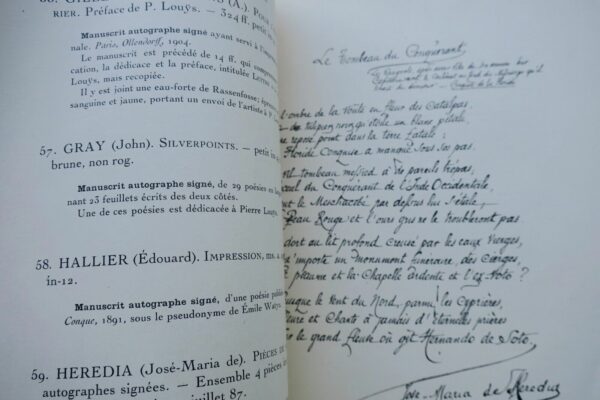 RIER. Préface de P. Louÿs. — 324 ff. petit in
Manuscrit autographe ayant servi à l'im
nale. Paris, Ollendorff, 1904.
Le manuscrit est précédé de 14 ff. qui comp
cation, la dédicace et la préface, intitulée
Louÿs, mais recopiée.
Il y est joint une eau-forte de Rassenfosse;
sanguine et jaune, portant un envoi de l'artiste à P
57. GRAY (John). SILVERPOINTS. — petit in
brune, non rog.
Manuscrit autographe signé, de 29 poésies en
nant 23 feuillets écrits des deux côtés.
Une de ces poésies est dédicacée à Pierre Louÿs.
58. HALLIER (Édouard). IMPRESSION, ms. a
in-12.
Manuscrit autographe signé, d'une poésie publi
Conque, 1891, sous le pseudonyme de Émile Watyn
59. HEREDIA (José-Maria de). PIÈCES
autographes signées. — Ensemble 4 pièces in
juillet 87.
Le Tombeau du Conquérant,
l'ombre de la voûte en fleur des Catalpas
étoile un blanc pétale,
repose point dans la terre fatale:
Floride Conquise a manqué sous ses pas.
tombeau messied à de pareils trépas,
du Conquérant de l'Inde Occidentale,
le Meschacébé par dessus lui s'étale;
Peau Rouge et l'ours gris ne le troubleront pas
au lit profond creusé par les eaux vierges,
importe un monument funéraire, des Cierges,
psaume et la Chapelle ardente et l'ex voto?
le vent du Nord, parmi les Cyprières,
pleure et chante à jamais d'éternelles prières
le grand fleuve où gît Hernando de Soto.
José Maria de Heredia